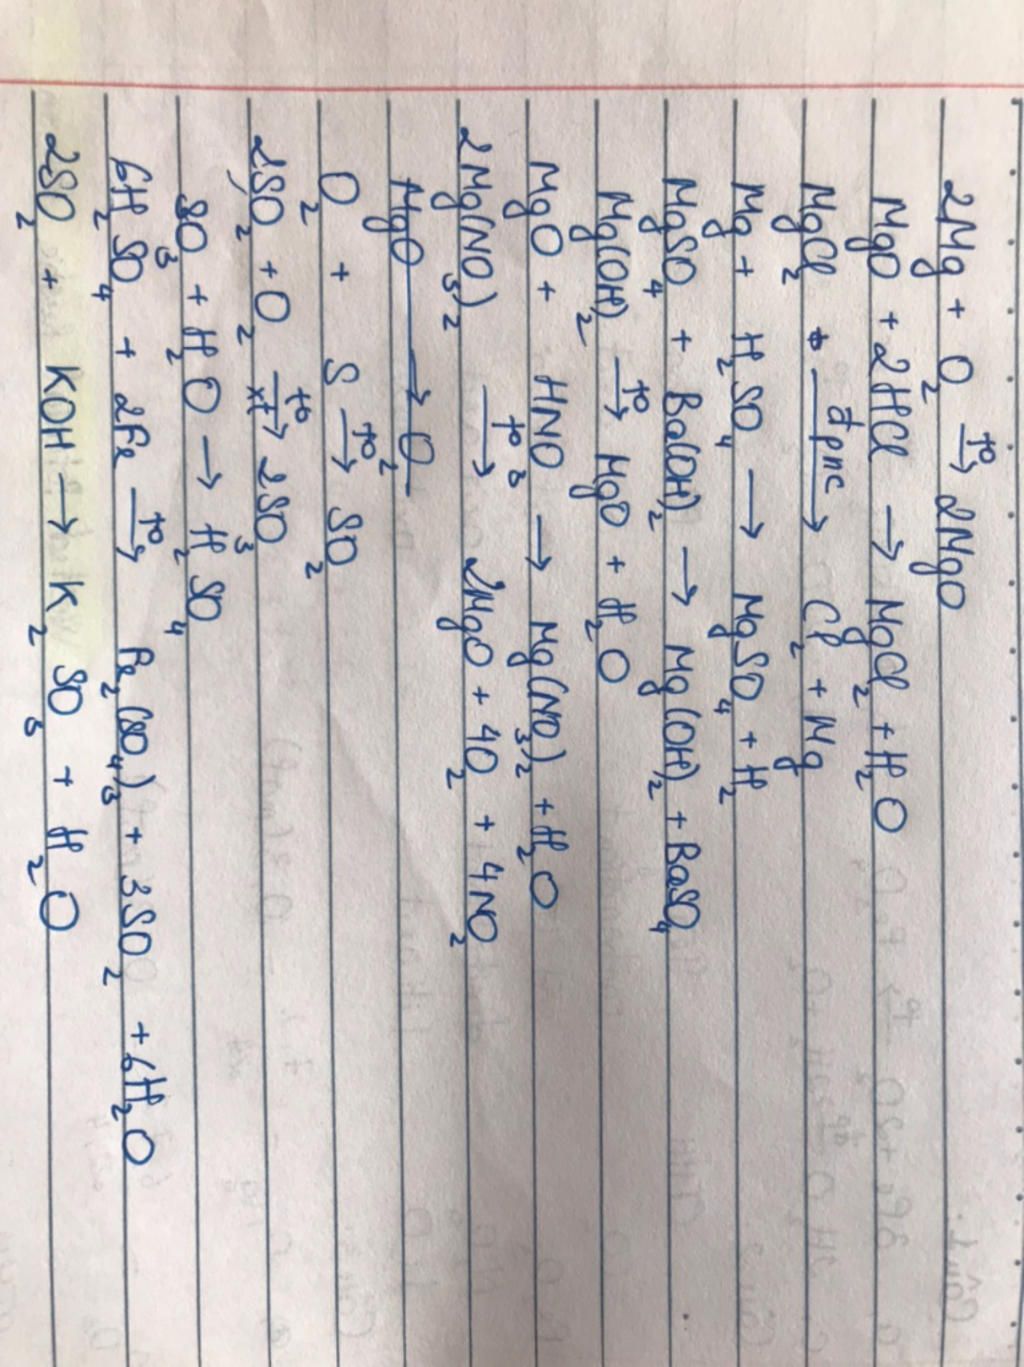 2Mg + O₂ —t°→ 2MgO
MgO + 2HCl → MgCl₂ + H₂O
MgCl₂ —đpnc→ Cl₂ + Mg
Mg + H₂SO₄ → MgSO₄ + H₂
MgSO₄ + Ba(OH)₂ → Mg(OH)₂ + BaSO₄
Mg(OH)₂ —t°→ MgO + H₂O
MgO + HNO₃ → Mg(NO₃)₂ + H₂O
2Mg(NO₃)₂ —t°→ 2MgO + 4O₂ + 4NO₂
MgO → O₂
O₂ + S —t°→ SO₂
2SO₂ + O₂ —t°, xt→ 2SO₃
SO₃ + H₂O → H₂SO₄
6H₂SO₄ + 2Fe —t°→ Fe₂(SO₄)₃ + 3SO₂ + 6H₂O
2SO₂ + KOH → K₂SO₃ + H₂O